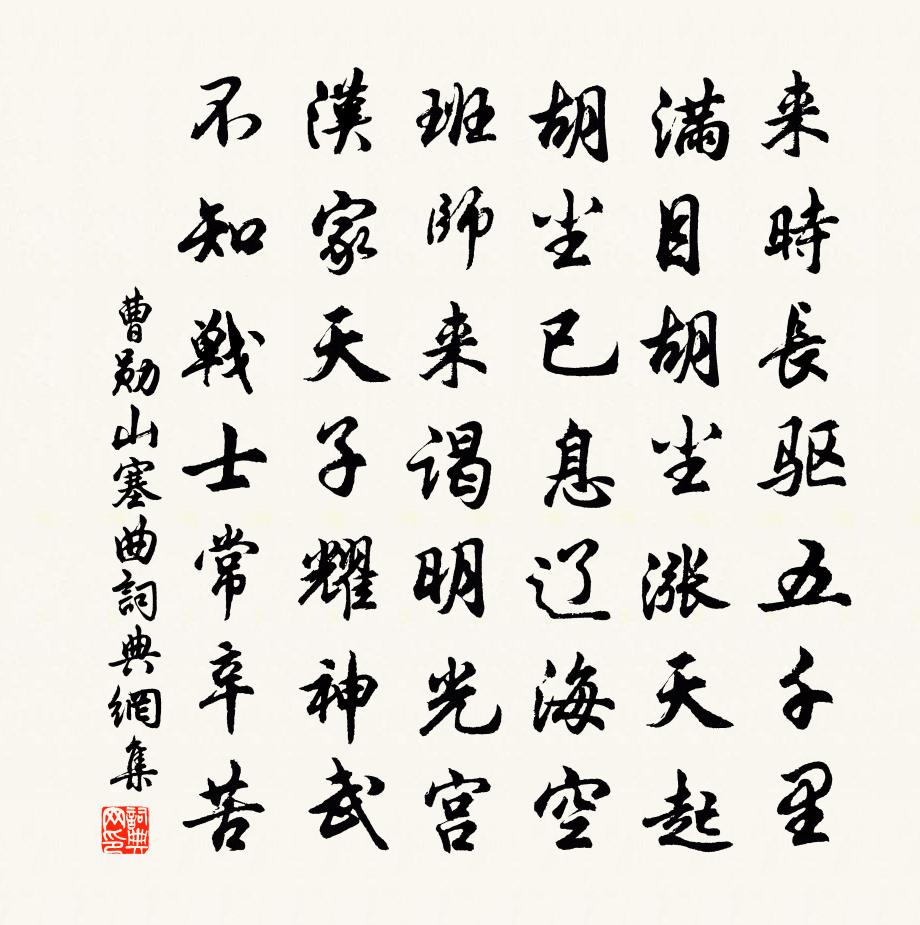 来時長驱五千里
满目胡尘涨天起
胡尘已息辽海空
班師来谒明光宫
漢家天子耀神武
不知戦士常辛苦
曹勋山塞曲詞典網集
詞典网印